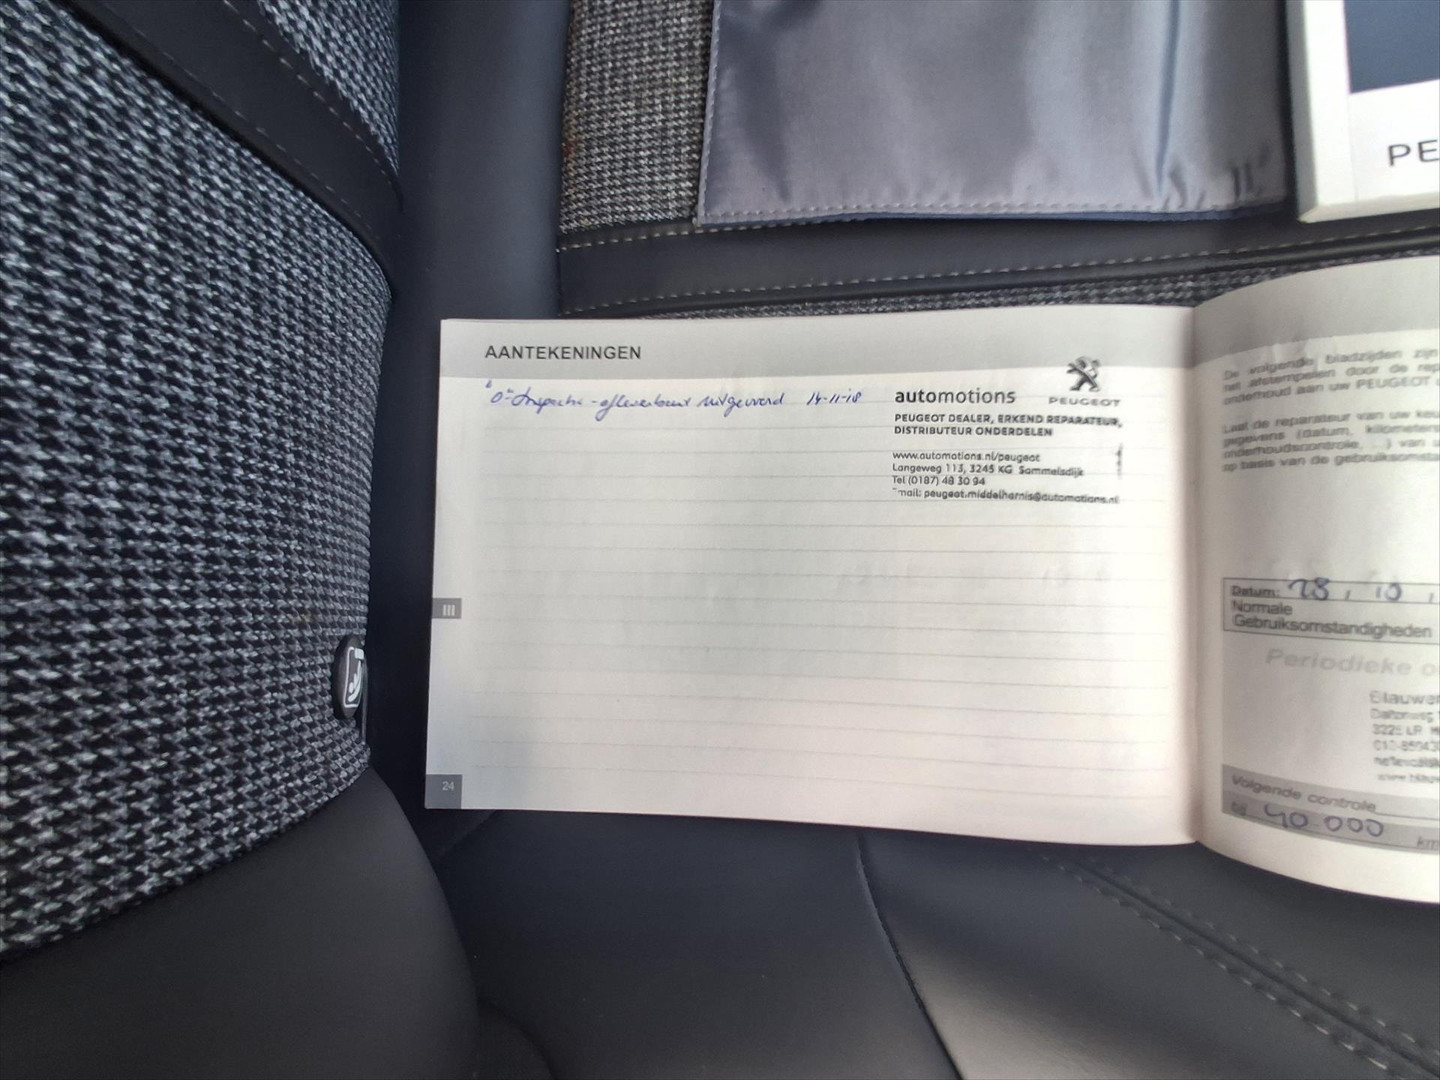 PE
AANTEKENINGEN
"0"-Inspectie - afleverbeurt uitgevoerd 14-11-18
automotions
PEUGEOT
PEUGEOT DEALER, ERKEND REPARATEUR,
DISTRIBUTEUR ONDERDELEN
www.automotions.nl/peugeot
Langeweg 113, 3245 KG Sommelsdijk
Tel (0187) 48 30 94
mail: peugeot.middelharnis@automotions.nl
III
24
De volgende bladzijden zijn
het afstempelen door de rep
onderhoud aan uw PEUGEOT
Laat de reparateur van uw keu
gegevens (datum, kilometers
onderhoudscontrole, ...) van u
op basis van de gebruiksomsta
Datum: 18, 10,
Normale
Gebruiksomstandigheden
Periodieke o
Blauw
3225 LR
Volgende controle
bij 40.000 km